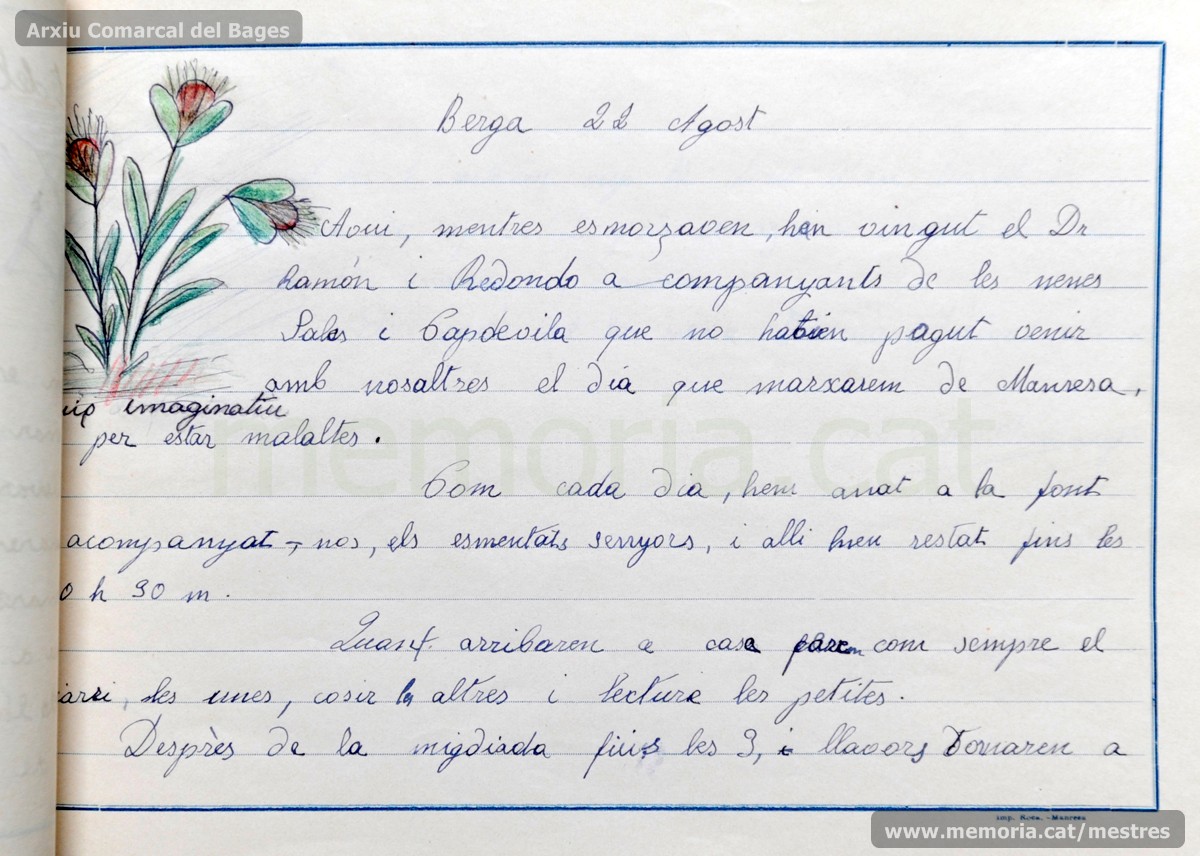 Arxiu Comarcal del Bages
Berga 22 Agost
Avui, mentres esmorzaven, han vingut el Dr
Ramón i Redondo a companyants de les nenes
Sales i Capdevila que no habien pogut venir
amb nosaltres el dia que marxarem de Manresa,
imaginatiu
per estar malaltes.
Com cada dia, hem anat a la font
acompanyat-nos, els esmentats senyors, i alli hem restat fins les
0 h 30 m.
Quant arribaren a casa farem com sempre el
iari, les unes, cosir les altres i lectura les petites.
Desprès de la migdiada fins les 3, i llavors tornaren a
memoria.cat
Imp. Roca. - Manresa
www.memoria.cat/mestres